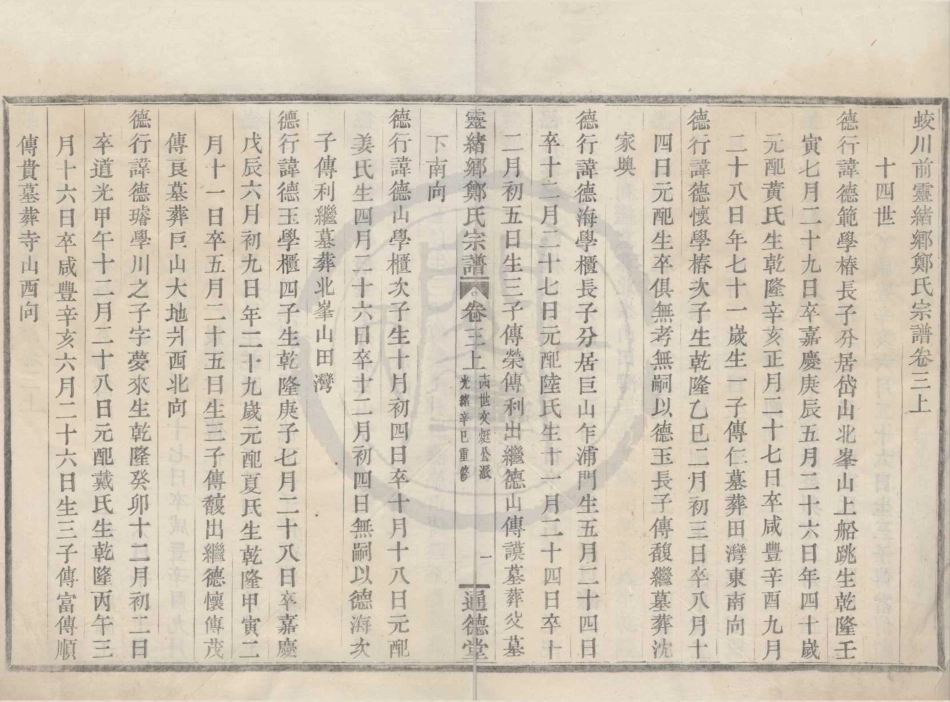 蛟川前靈緒鄉鄭氏宗譜卷三上
十四世
德行諱德範學椿長子分居岱山北峯山上船跳生乾隆壬
寅七月二十九日卒嘉慶庚辰五月二十六日年四十歲
元配黃氏生乾隆辛亥正月二十七日卒咸豐辛酉九月
二十八日年七十一歲生一子傳仁墓葬田灣東南向
德行諱德懷學椿次子生乾隆乙巳二月初三日卒八月十
四日元配生卒俱無考無嗣以德玉長子傳馥繼墓葬沈
家㘭
德行諱德海學櫃長子分居巨山乍浦門生五月二十四日
卒十二月二十七日元配陸氏生十一月二十四日卒十
二月初五日生三子傳榮傳利出繼德山傳謨墓葬父墓
靈緒鄉鄭氏宗譜
卷三上
丙世文娗公派
光緒辛巳重修
一
通德堂
下南向
德行諱德山學櫃次子生十月初四日卒十月十八日元配
姜氏生四月二十六日卒十二月初四日無嗣以德海次
子傳利繼墓葬北峯山田灣
德行諱德玉學櫃四子生乾隆庚子七月二十八日卒嘉慶
戊辰六月初九日年二十九歲元配夏氏生乾隆甲寅二
月十一日卒五月二十五日生三子傳馥出繼德懷傳茂
傳良墓葬巨山大地爿酉北向
德行諱德璿學川之子字夢來生乾隆癸卯十二月初二日
卒道光甲午十二月二十八日元配戴氏生乾隆丙午三
月十六日卒咸豐辛亥六月二十六日生三子傳富傳順
傳貴墓葬寺山酉向